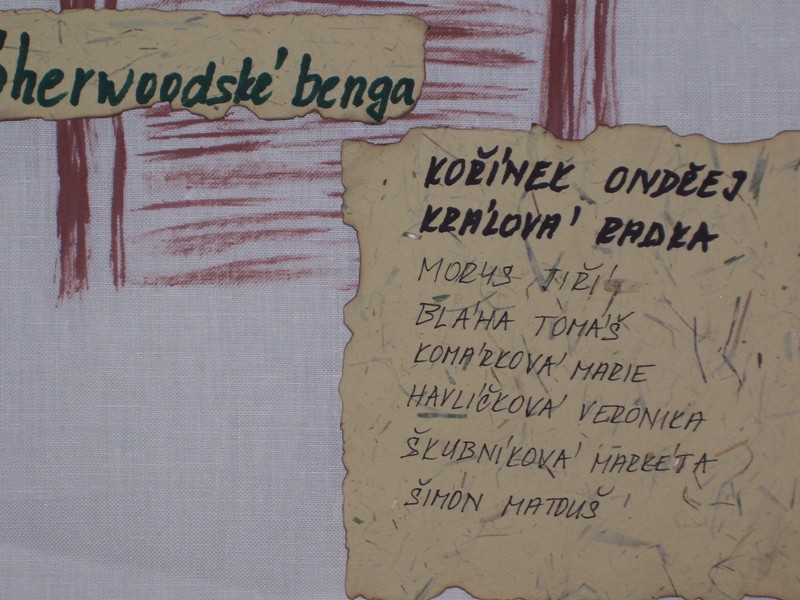 Sherwoodské benga
KOŘÍNEK ONDŘEJ
KRÁLOVÁ RADKA
MORYS JIŘÍ
BLÁHA TOMÁŠ
KOMÁRKOVÁ MARIE
HAVLÍČKOVÁ VERONIKA
ŠKUBNÍKOVÁ MARKÉTA
ŠIMON MATOUŠ